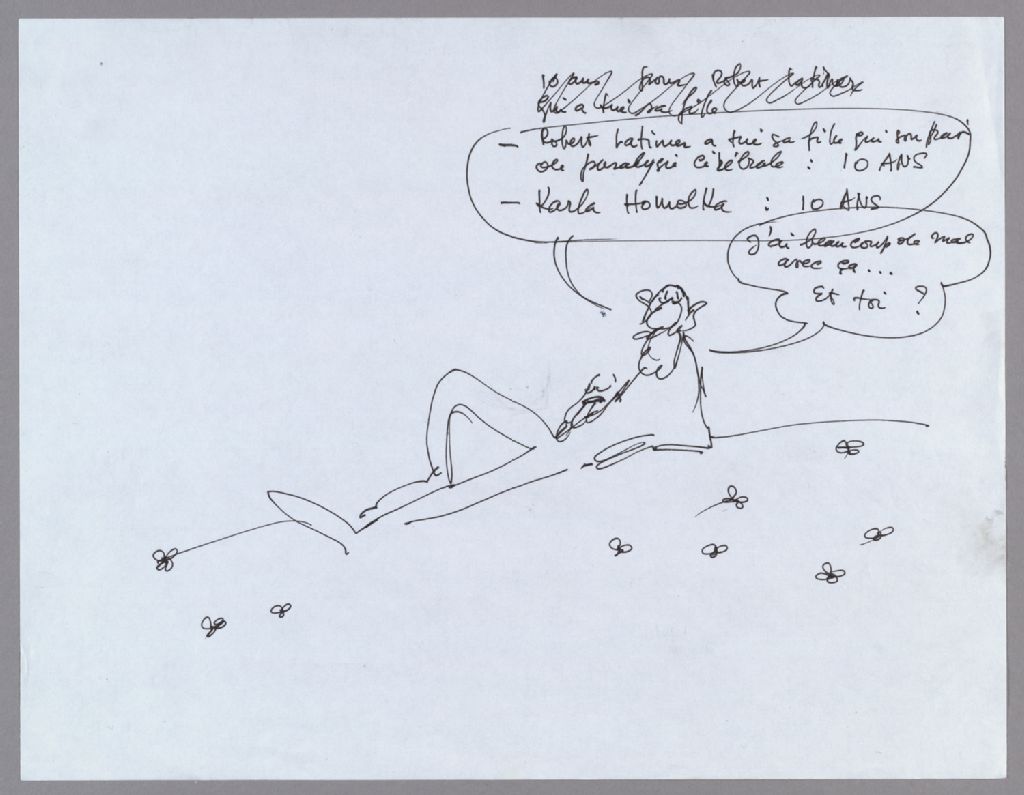 10 ans pour Robert Latimer
qui a tué sa fille
— Robert Latimer a tué sa fille qui souffrait
de paralysie cérébrale : 10 ANS
— Karla Homolka : 10 ANS
J'ai beaucoup de mal
avec ça...
Et toi ?